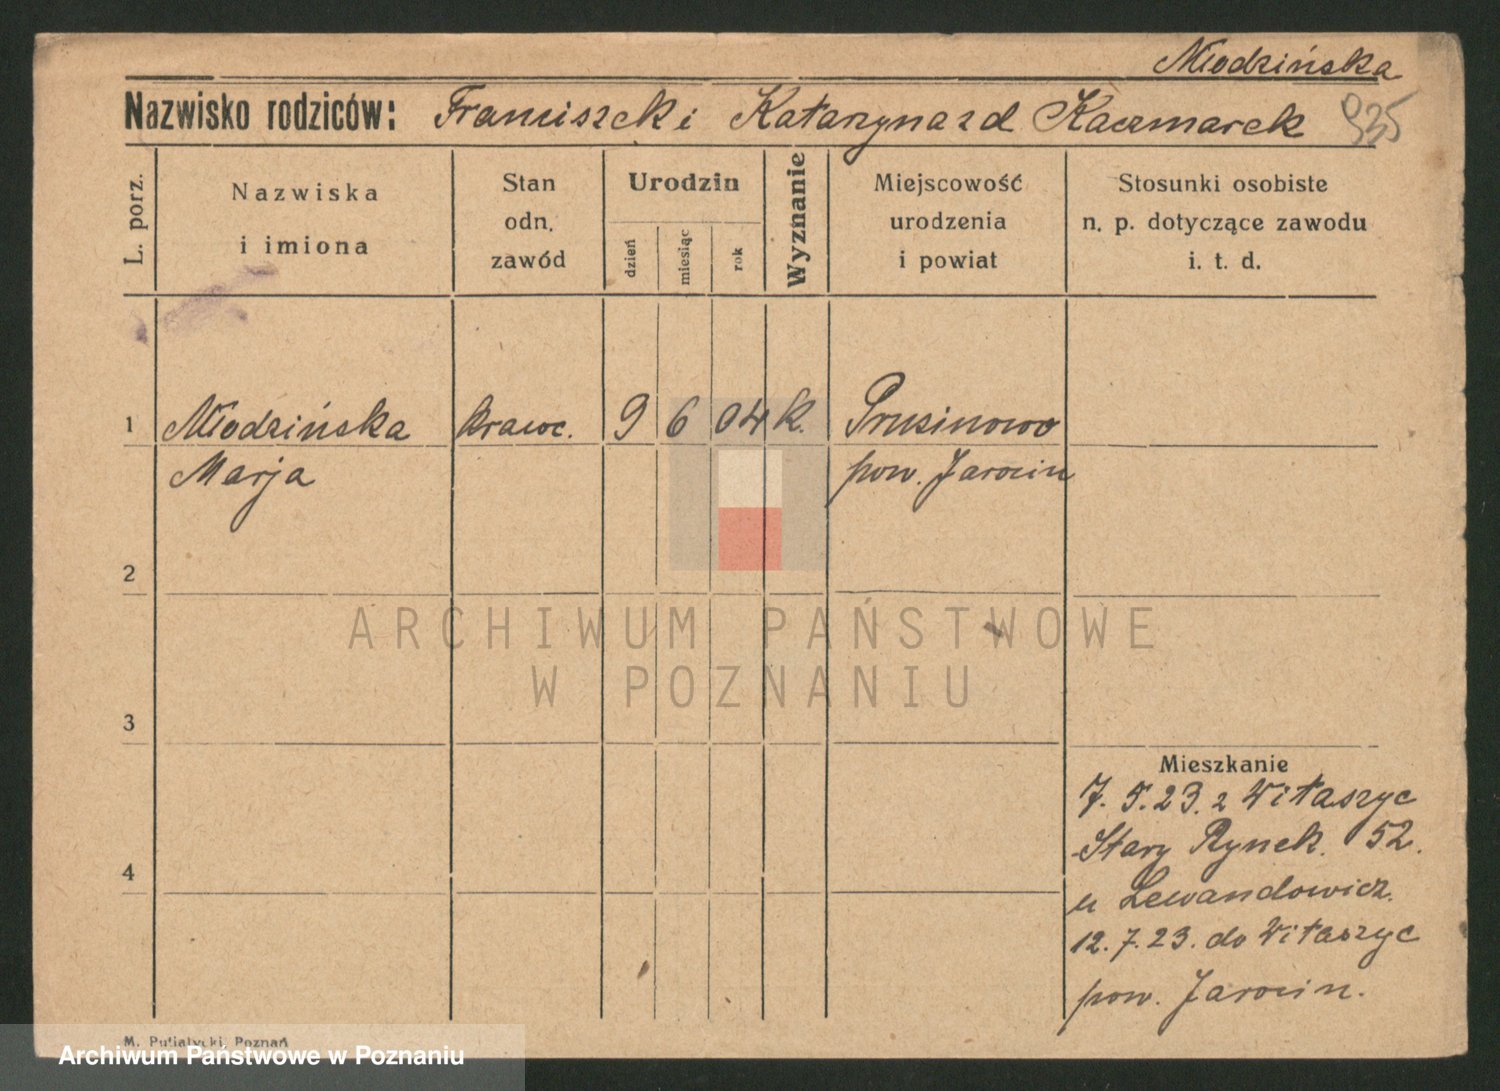 Młodzińska
Nazwisko rodziców: Franciszek i Katarzyna z d Kaczmarek 935
L. porz.
Nazwiska
i imiona
Stan
odn.
zawód
Urodzin
dzień
miesiąc
rok
Wyznanie
Miejscowość
urodzenia
i powiat
Stosunki osobiste
n. p. dotyczące zawodu
i. t. d.
1 Młodzińska krawc. 9 6 04 k. Prusinowo
Marja pow. Jarocin
2
ARCHIWUM PAŃSTWOWE
W POZNANIU
3
Mieszkanie
7. 5. 23. z Witaszyc
Stary Rynek. 52.
4
u Lewandowicz.
12. 7. 23. do Witaszyc
pow. Jarocin.
M. Putiatycki, Poznań
Archiwum Państwowe w Poznaniu